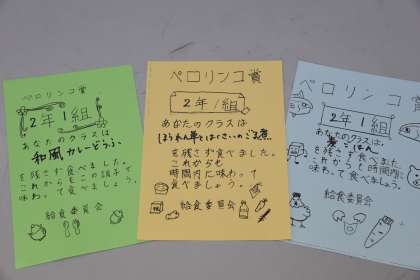 ペロリンコ賞
2年1組
あなたのクラスは
和風カレーどうふ
を残さず食べました。
これからもこの調子で
味わって食べましょう。
給食委員会
ペロリンコ賞
2年1組
あなたのクラスは
ほうれん草とはくさいのごま煮
を残さず食べました。
これからも
時間内に味わって
食べましょう。
給食委員会
ペロリンコ賞
2年1組
あなたのクラスは
ごはん
を残さず食べました。
これからも時間内に
味わって食べましょう。
給食委員会